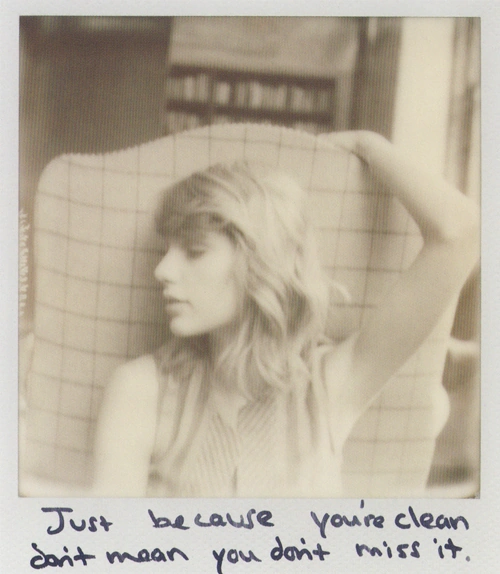 Just because you're clean
don't mean you don't miss it.